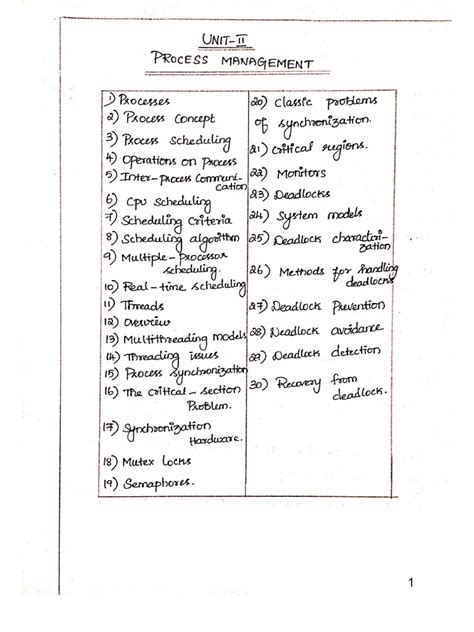 UNIT-II
PROCESS MANAGEMENT
1) Processes
2) Process Concept
3) Process Scheduling
4) Operations on Process
5) Inter-Process Communi-
cation
6) CPU Scheduling
7) Scheduling Criteria
8) Scheduling algorithm
9) Multiple-Processor
scheduling.
10) Real-time scheduling
11) Threads
12) Overview
13) Multithreading models
14) Threading issues
15) Process Synchronization
16) The Critical-section
Problem.
17) Synchronization
Hardware.
18) Mutex locks
19) Semaphores.
20) Classic problems
of synchronization.
21) Critical regions.
22) Monitors
23) Deadlocks
24) System models
25) Deadlock characteri-
zation
26) Methods for handling
deadlocks
27) Deadlock Prevention
28) Deadlock avoidance
29) Deadlock detection
30) Recovery from
deadlock.
1